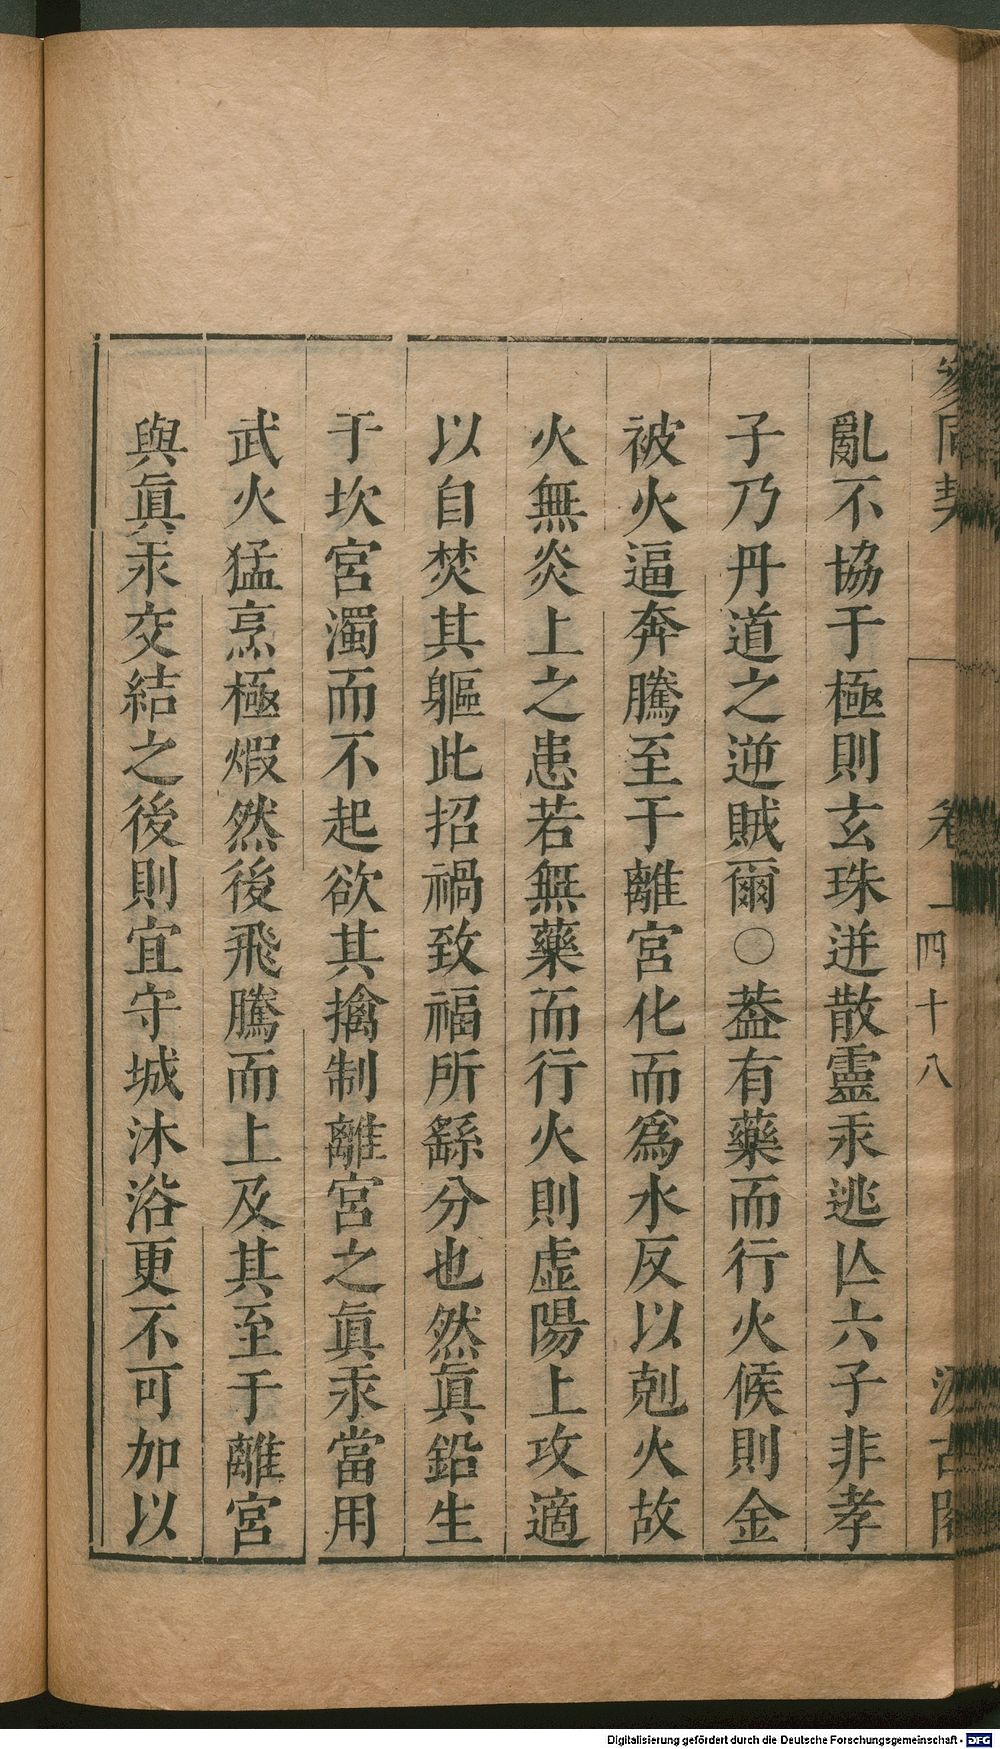 參同契 卷上 四十八 汲古閣
亂不協于極則玄珠迸散靈汞逃亾六子非孝
子乃丹道之逆賊爾〇葢有藥而行火候則金
被火逼奔騰至于離宮化而爲水反以剋火故
火無炎上之患若無藥而行火則虛陽上攻適
以自焚其軀此招禍致福所繇分也然眞鉛生
于坎宮濁而不起欲其擒制離宮之眞汞當用
武火猛烹極煆然後飛騰而上及其至于離宮
與眞汞交結之後則宜守城沐浴更不可加以
Digitalisierung gefördert durch die Deutsche Forschungsgemeinschaft - DFG